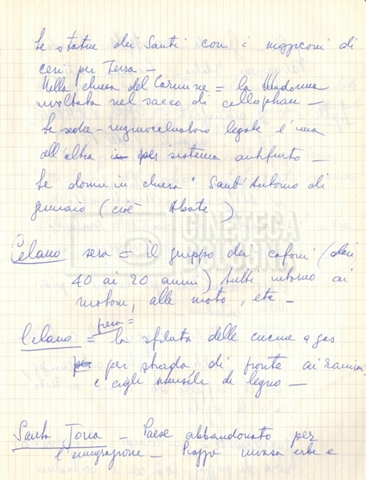 Le statue dei Santi con i mozziconi di
ceri per Terra –
Nella chiesa del Carmine = la Madonna
involtata nel sacco di cellophan –
Le sedie – inginocchiatoio legate l'una
all'altra per sistema antifurto –
Le donne in chiesa "Sant'Antonio di
gennaio (cioè Abate)
CINETECA
BOLOGNA
Celano sera = il gruppo dei cafoni (dai
40 ai 20 anni) tutti intorno ai
motori, alle moto, etc –
Celano = la sfilata delle cucine a gas
per strada, di fronte ai ramai
e agli utensili di legno –
Santa Jona – Paese abbandonato per
l'emigrazione – Piazza invasa erbe e